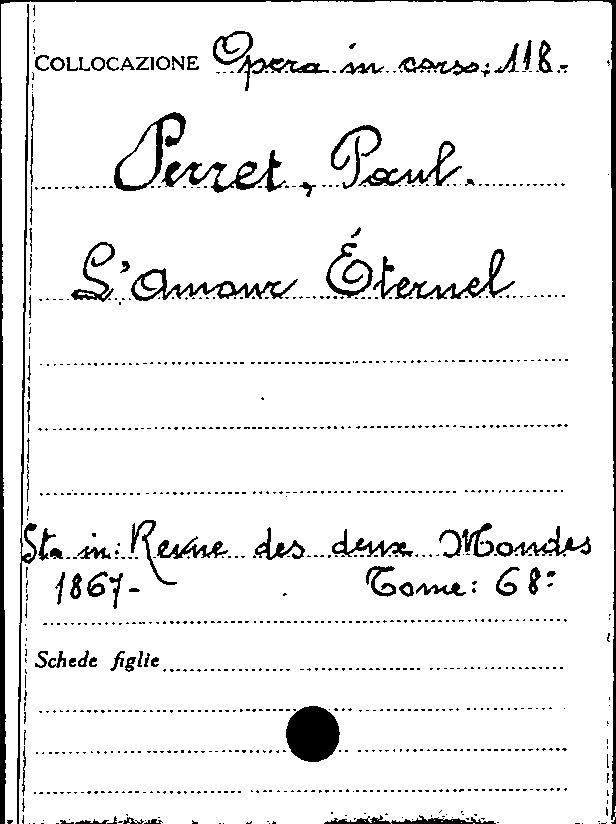 COLLOCAZIONE Opera in corso: 118-
Perret, Paul.
L'Amour Éternel
Sta in: Revue des deux Mondes
1867- Tome: 68:
Schede figlie